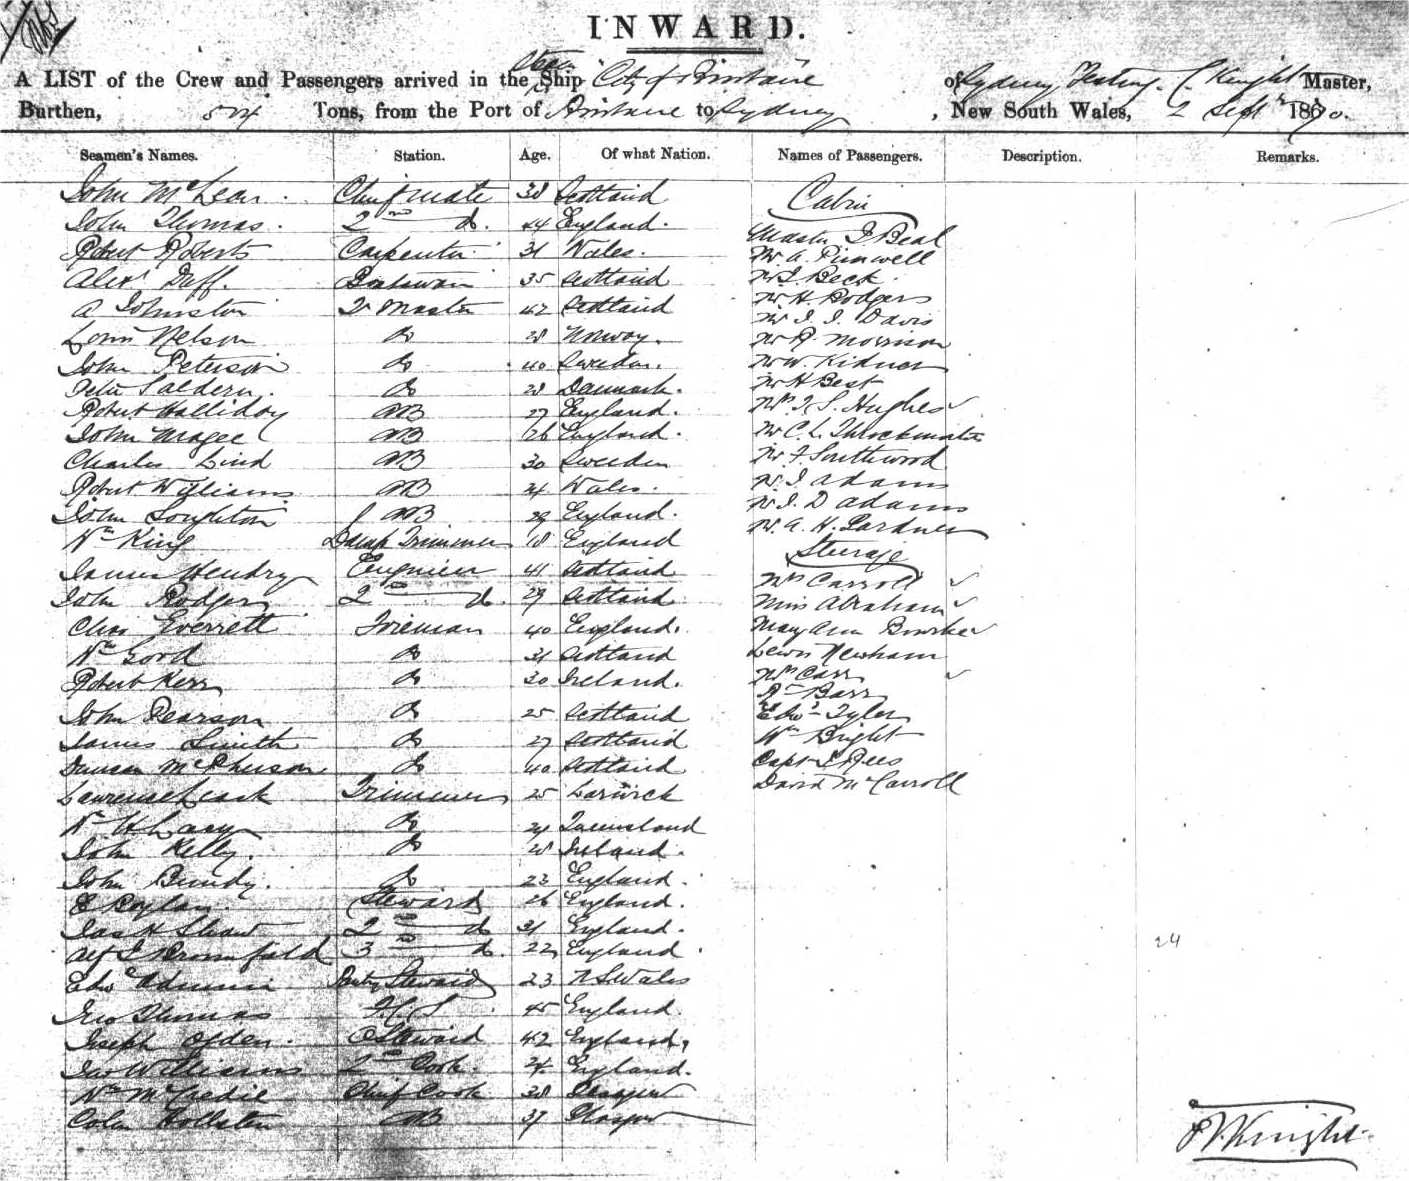 INWARD.
A LIST of the Crew and Passengers arrived in the Ship Steam City of Brisbane of Sydney Master,
Burthen, 504 Tons, from the Port of Brisbane to Sydney, New South Wales, 2 Sept 18
Seamen's Names. Station. Age. Of what Nation. Names of Passengers. Description. Remarks.
John McLean Chief mate 38 Scotland
John Thomas. 2nd do. 44 England.
Robert Roberts Carpenter 31 Wales.
Alexr Duff. Boatswain 35 Scotland
A Johnston Master 42 Scotland
Nelson do 28 Norway.
John Peterson do 40 Sweden.
do 28 Denmark.
Robert Halliday AB 27 England.
John Magee AB 26 England.
Charles Lind AB 30 Sweeden
Robert Williams AB 24 Wales.
John Loughton AB 29 England.
Wm King Lamp Trimmer 18 England
James Hendry Engineer 41 Scotland
John Rodger 2nd do. 29 Scotland
Chas Everrett Fireman 40 England.
Wm Gord do 31 Scotland
Robert Kerr do 30 Ireland.
John Pearson do 25 Scotland
James Smith do 27 Scotland
Duncan McPherson do 40 Scotland
Lawrence Leask Trimmer 25 Larwick
Wm H Lacy do 24 Queensland
John Kelly. do 28 Ireland.
John Bundy. do 23 England.
E Boylan Steward 26 England.
Jas H Shaw 2nd do 31 England.
Alf J Broomfield 3rd do. 22 England
Edw Pantry Steward 23 N S Wales
Geo Thomas F.C.S. 45 England.
Joseph Ogden. Steward 42 England,
Williams 2nd Cook. 24 England.
Wm McCredie Chief Cook 38 Glasgow
Colin AB 37 Glasgow
Cabin
Master J Beal
Mr A. Pinwell
Mr J. Beck.
Mr H. Rodgers
Mr J. J. Davis
Mr R. Morrison
Mr W. Kidner
Mr H Best
Mrs J. S. Hughes
Mr C. L. Throckmorton
Mr F. Southwood
Mr J Adams
Mr J. D Adams
Mr A. H. Pardner
Steerage
Mrs Carroll
Miss Abraham
Mary Ann Bourke
Lewis Newham
Mrs Carr
Barr
Edwd Tyler
Wm Bright
Capt J Rees
David McCarroll
24
Knight.